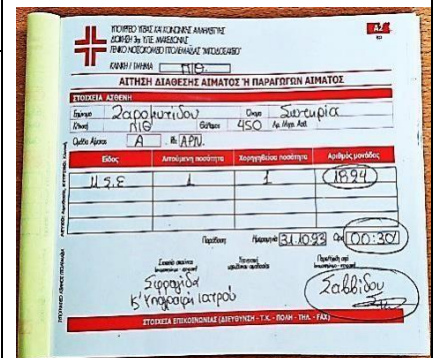 ΥΠΟΥΡΓΕΙΟ ΥΓΕΙΑΣ ΚΑΙ ΚΟΙΝΩΝΙΚΗΣ ΑΛΛΗΛΕΓΓΥΗΣ
ΔΙΟΙΚΗΣΗ 3ης ΥΠΕ ΜΑΚΕΔΟΝΙΑΣ
ΓΕΝΙΚΟ ΝΟΣΟΚΟΜΕΙΟ ΠΤΟΛΕΜΑΪΔΑΣ "ΜΠΟΔΟΣΑΚΕΙΟ"
ΚΛΙΝΙΚΗ / ΤΜΗΜΑ ΠΘ.
ΑΙΤΗΣΗ ΔΙΑΘΕΣΗΣ ΑΙΜΑΤΟΣ Ή ΠΑΡΑΓΩΓΩΝ ΑΙΜΑΤΟΣ
ΣΤΟΙΧΕΙΑ ΑΣΘΕΝΗ
Επώνυμο Σαραμυτίδου Όνομα Σωτηρία
Κλινική ΠΘ Θάλαμος 450 Αρ. Μητρ. Ασθ.
Ομάδα Αίματος A Rh ΑΡΝ.
Είδος Αιτούμενη ποσότητα Χορηγηθείσα ποσότητα Αριθμός μονάδος
Μ.Σ.Ε 1 1 1894
Παράδοση Ημερομηνία 31.10.93 Ώρα 00:30
Σφραγίδα Σαββίδου
κ' Υπογραφή ιατρού
ΣΤΟΙΧΕΙΑ ΕΠΙΚΟΙΝΩΝΙΑΣ (ΔΙΕΥΘΥΝΣΗ - Τ.Κ. - ΠΟΛΗ - ΤΗΛ. - FAX)